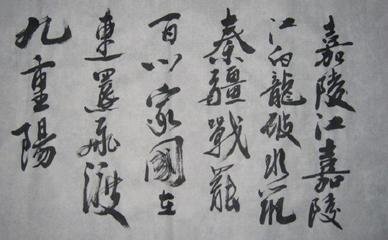 嘉陵江嘉陵
江白龍破水筑
秦疆戰罷
百家國在
東還飛渡
九重陽